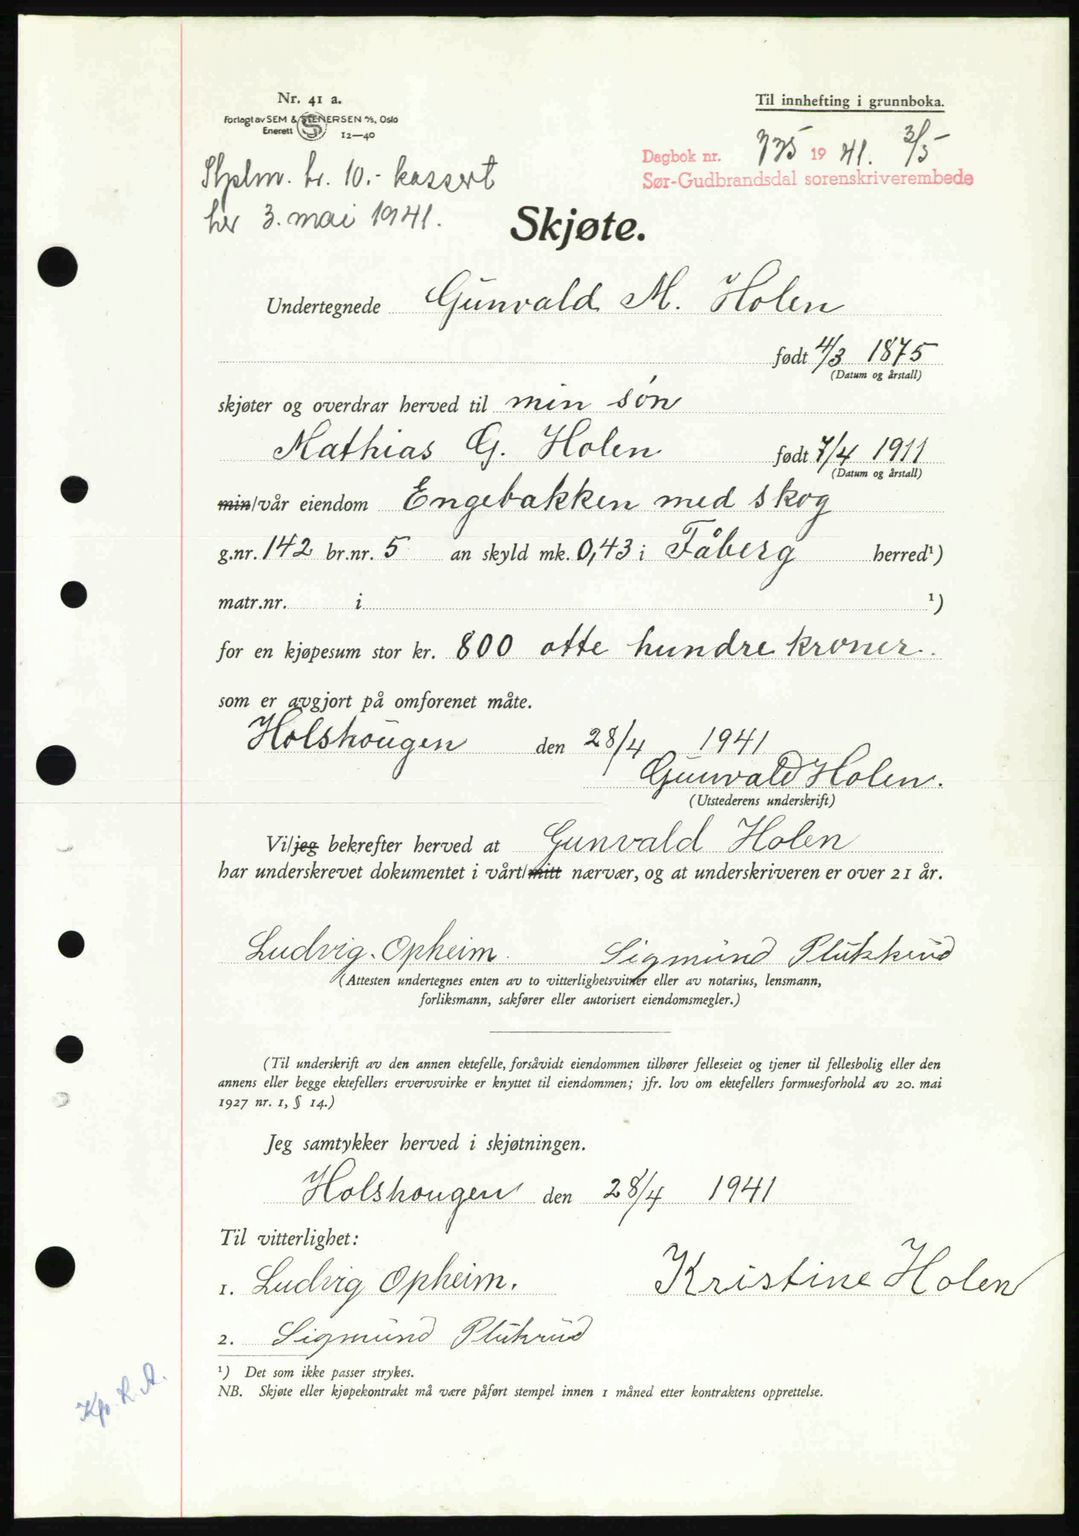 Nr. 41 a.
Forlagt av SEM & STENERSEN A/S, Oslo
Enerett 12—40
Til innhefting i grunnboka.
Dagbok nr. 775 1941. 3/5
Sør-Gudbrandsdal sorenskriverembede
Stplm. kr. 10.- kassert
her 3. mai 1941.
Skjøte.
Undertegnede Gunvald M. Holen
født 4/3 1875
(Datum og årstall)
skjøter og overdrar herved til min søn
Mathias G. Holen født 7/4 1911
(Datum og årstall)
min/vår eiendom Engebakken med skog
g.nr. 142 br.nr. 5 an skyld mk. 0,43 i Fåberg herred¹)
matr.nr. i ¹)
for en kjøpesum stor kr. 800 otte hundre kroner.
som er avgjort på omforenet måte.
Holshougen den 28/4 1941
Gunvald Holen.
(Utstederens underskrift)
Vi/jeg bekrefter herved at Gunvald Holen
har underskrevet dokumentet i vårt/mitt nærvær, og at underskriveren er over 21 år.
Ludvig Opheim. Sigmund Plukkrud
(Attesten undertegnes enten av to vitterlighetsvitner eller av notarius, lensmann,
forliksmann, sakfører eller autorisert eiendomsmegler.)
(Til underskrift av den annen ektefelle, forsåvidt eiendommen tilhører felleseiet og tjener til fellesbolig eller den
annens eller begge ektefellers ervervsvirke er knyttet til eiendommen; jfr. lov om ektefellers formuesforhold av 20. mai
1927 nr. 1, § 14.)
Jeg samtykker herved i skjøtningen.
Holshougen den 28/4 1941
Til vitterlighet:
1. Ludvig Opheim. Kristine Holen
2. Sigmund Plukrud
¹) Det som ikke passer strykes.
NB. Skjøte eller kjøpekontrakt må være påført stempel innen 1 måned etter kontraktens opprettelse.